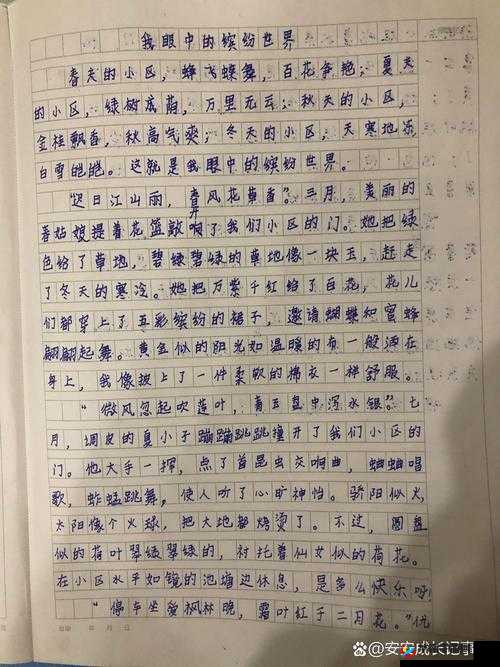 我眼中的缤纷世界
春天的小区，蜂飞蝶舞，百花争艳；夏天
的小区，绿树成荫，万里无云；秋天的小区，
金桂飘香，秋高气爽；冬天的小区，天寒地冻，
白雪皑皑。这就是我眼中的缤纷世界。
“迟日江山丽，春风花草香”。三月，美丽的
春姑娘提着花篮敲开了我们小区的门。她把绿
色给了草地，碧绿碧绿的草地像一块玉，赶走
了冬天的寒冷。她把万紫千红给了百花，花儿
们都穿上了五彩缤纷的裙子，邀请蝴蝶和蜜蜂
翩翩起舞。黄金似的阳光如温暖的布一般洒在
身上，我像披上了一件柔软的棉衣一样舒服。
“微风忽起吹莲叶，青玉盘中泻水银”。七
月，调皮的夏小子蹦蹦跳跳撞开了我们小区的
门。他大手一挥，点了首昆虫交响曲，蛐蛐唱
歌，蚱蜢跳舞，使人听了心旷神怡。骄阳似火，
太阳像个火球，把大地都烧烫了。不过，圆盘
似的荷叶翠绿翠绿的，衬托着仙女似的荷花。
在小区水平如镜的池塘边休息，是多么快乐呀！
“停车坐爱枫林晚，霜叶红于二月花。”
年 月 日
@安安成长记事